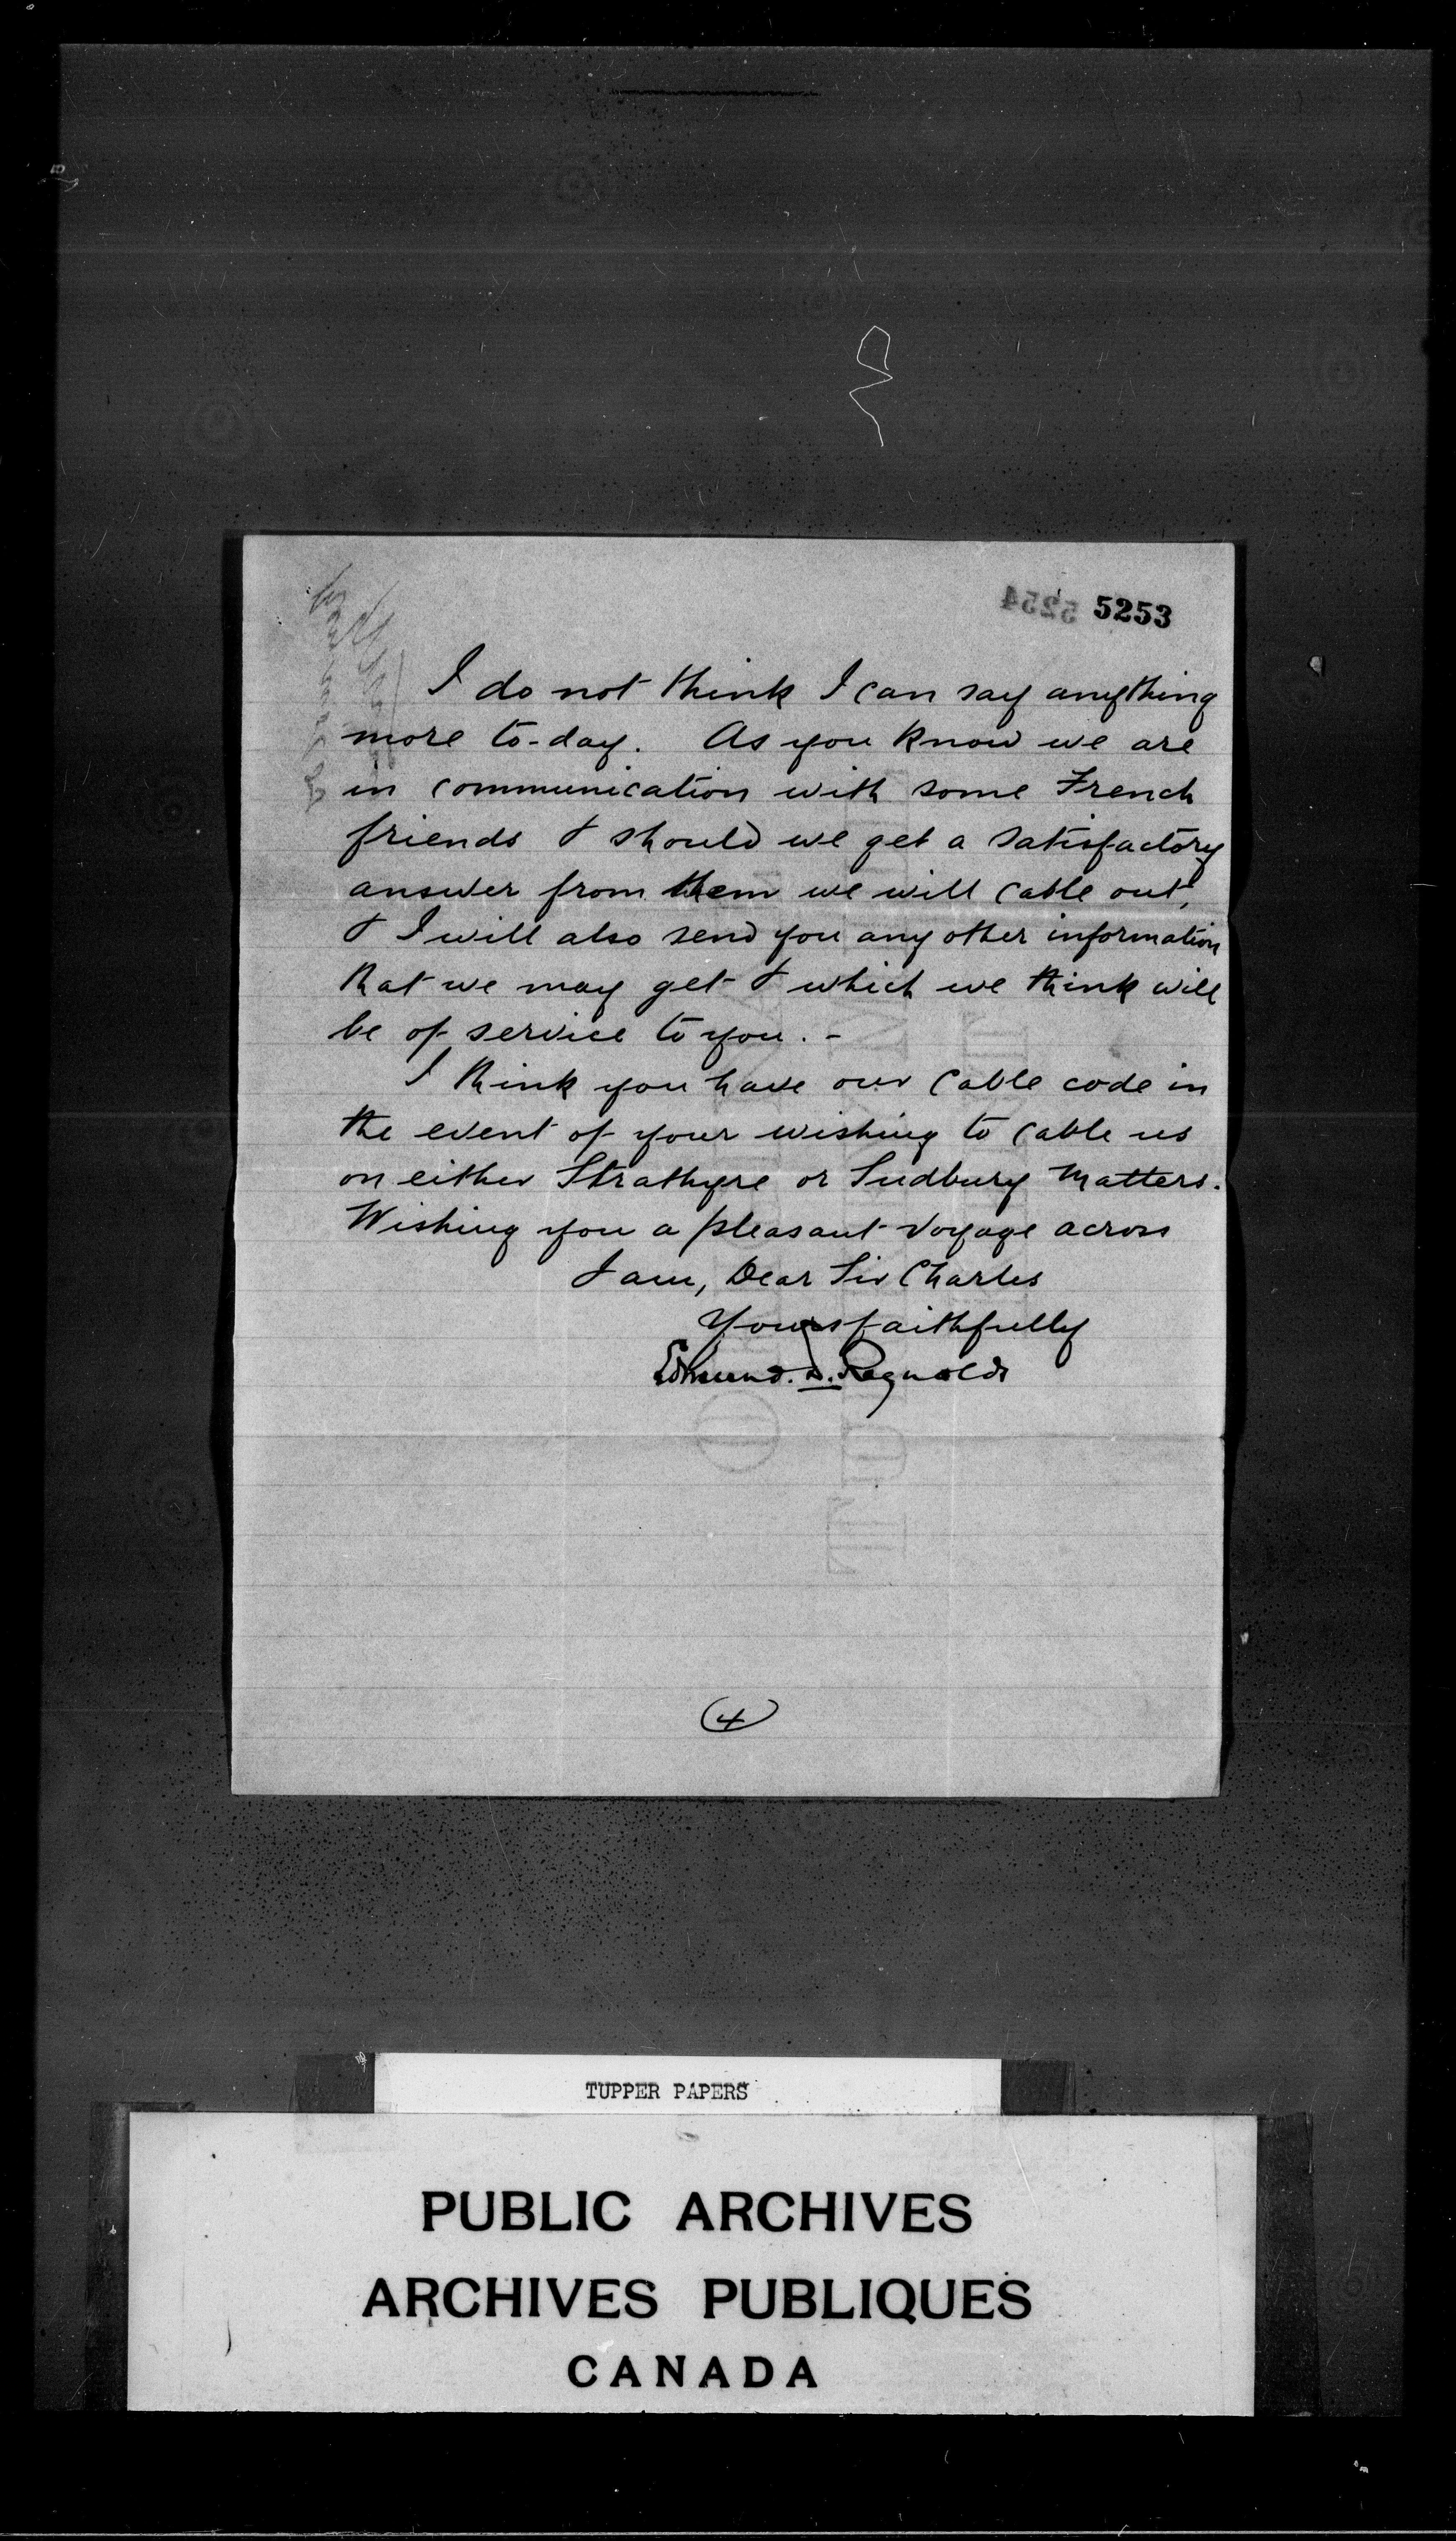 5253
I do not think I can say anything
more to-day. As you know we are
in communication with some French
friends & should we get a satisfactory
answer from them we will cable out,
& I will also send you any other information
that we may get & which we think will
be of service to you. -
I think you have our cable code in
the event of your wishing to cable us
on either Strathyre or Sudbury matters.
Wishing you a pleasant voyage across
I am, Dear Sir Charles
Yours faithfully
Edmund. D. Reynolds
4
TUPPER PAPERS
PUBLIC ARCHIVES
ARCHIVES PUBLIQUES
CANADA